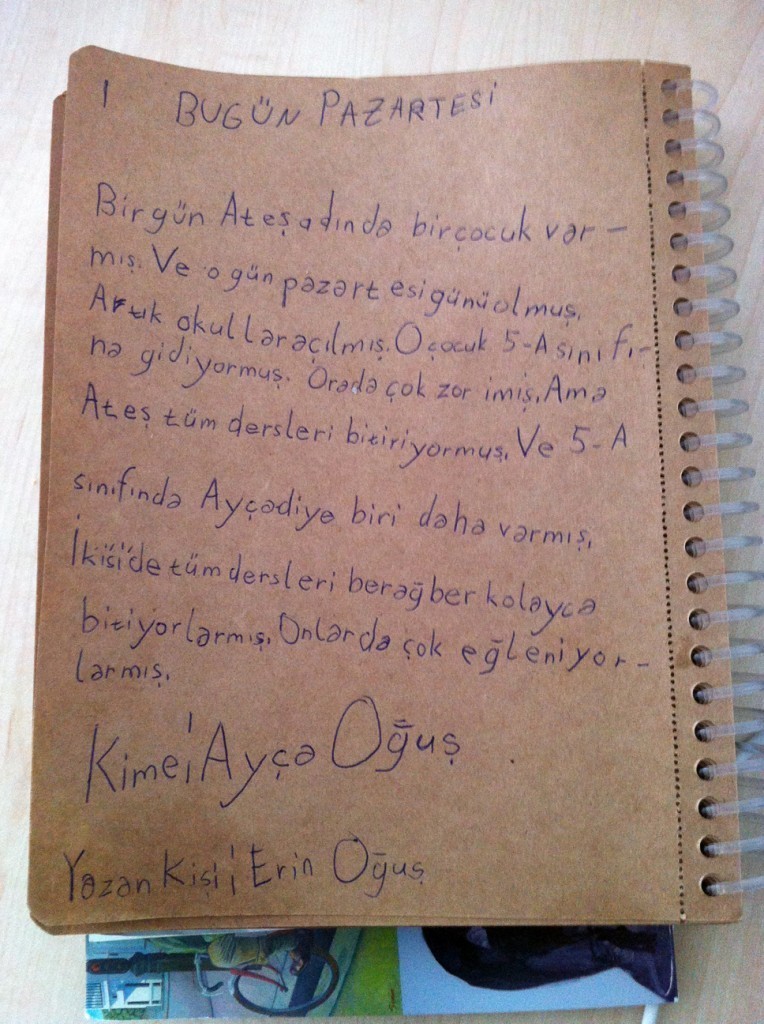 1 BUGÜN PAZARTESİ
Bir gün Ateş adında bir çocuk var-
mış. Ve o gün pazartesi günü olmuş.
Artık okullar açılmış. O çocuk 5-A sınıfı-
na gidiyormuş. Orada çok zor imiş. Ama
Ateş tüm dersleri bitiriyormuş. Ve 5-A
sınıfında Ayça diye biri daha varmış.
İkisi'de tüm dersleri berağber kolayca
bitiyorlarmış. Onlar da çok eğleniyor-
larmış.
Kime: Ayça Oğuş
Yazan Kişi: Erin Oğuş